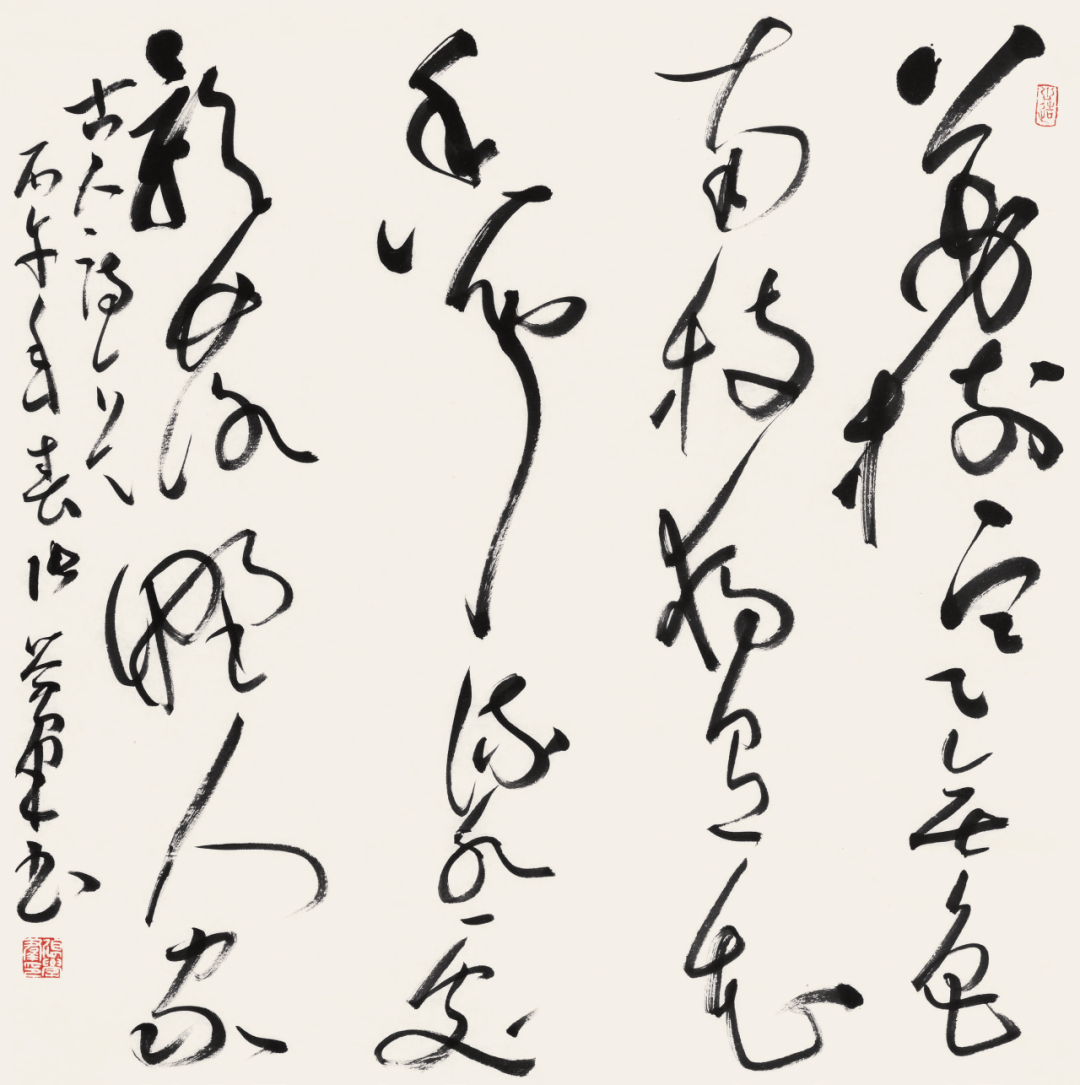 萬樹寒無色
南枝獨有花
香聞流水處
影落野人家
古人詩一首
丙午年春張學羣書
張學羣印